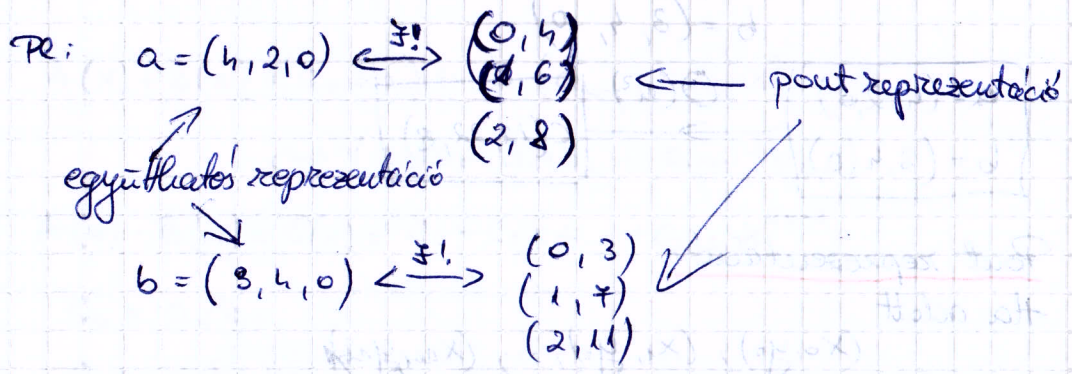 Pl: a = (4, 2, 0) <—∃!—> (0, 4)
(1, 6) <— pont reprezentáció
(2, 8)
együtthatós reprezentáció
b = (3, 4, 0) <—∃!—> (0, 3)
(1, 7)
(2, 11)